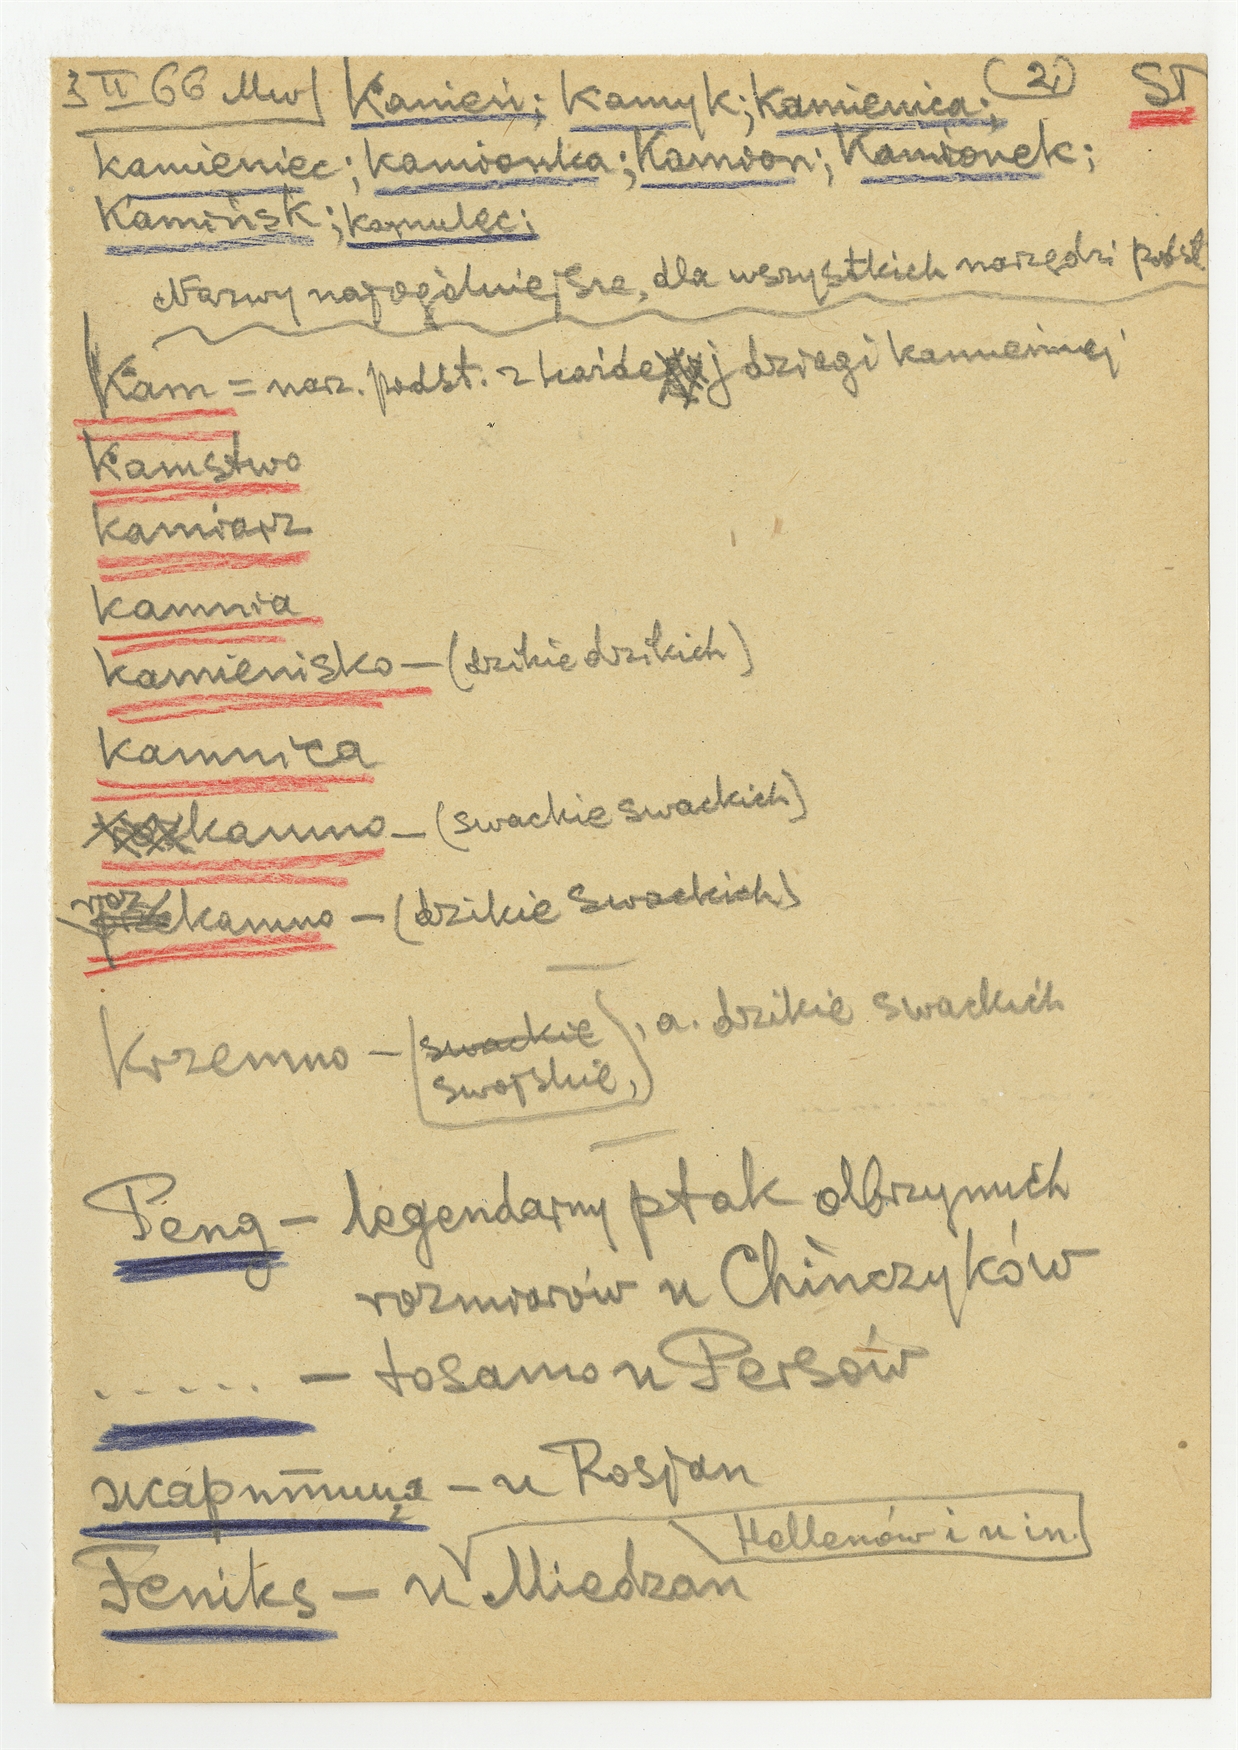 3 II 66 Mw| Kamień; kamyk; kamienica; (2) ST
kamieniec; kamionka; Kamion; Kamionek;
Kamińsk; kamulec;
Nazwy najogólniejsze, dla wszystkich narzędzi podst.
Kam = narz. podst. z każdej dzięgi kamiennej
Kamstwo
kamiarz
kamnia
kamienisko — (dzikie dzikich)
kamnica
kamno — (swackie swackich)
kamno — (dzikie swackich)
krzemno — (swackie
swojskie,), a. dzikie swackich
Peng — legendarny ptak olbrzymich
rozmiarów u Chińczyków
. . . . . — tosamo u Persów
жарптица — u Rosjan
Hellenów i u in.
Feniks — u Miedzan